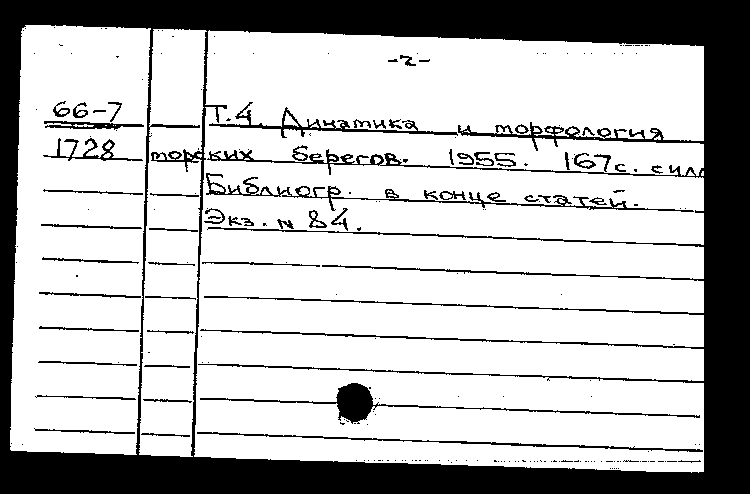 -2-
66-7 Т.4. Динамика и морфология
1728 морских берегов. 1955. 167с. с илл
Библиогр. в конце статей.
Экз. № 84.